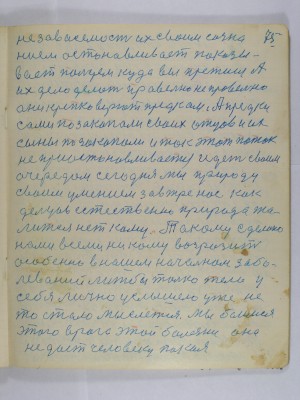 75
независемость их своим созна
нием останавливает показы-
вает почем куда вы прежние А
их дело делают правельно не провельно
они крепко верют предкам. А предки
сами позакопали своих отцов и их
сыны позакопали и так этот поток
не приостонавливается идет своим
очередом сегодня мы природу
своим умением завтре нас как
делцов естественно природа жа-
литься нет кому. Такому сделоно
нами всеми ни кому возразить
особенно в нашем начелном забо-
левании хотябы толко тело у
себя лично услышено уже не
то стало мыслется. мы боимся
этого врага этой болезни она
не дает человеку покоя